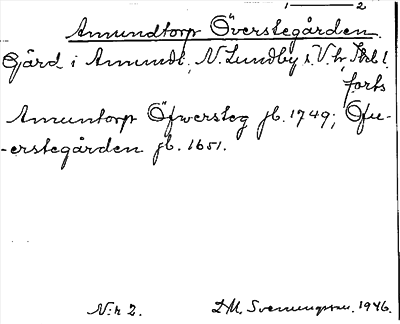 1 — 2
Amundtorp Överstegården.
Gård i Amundt., N. Lundby s. V. hd, Skbl.
forts
Amuntorp Öfwersteg jb. 1749; Öfu-
-erstegården jb. 1651.
N:r 2. D.M. Svenungsson. 1946.